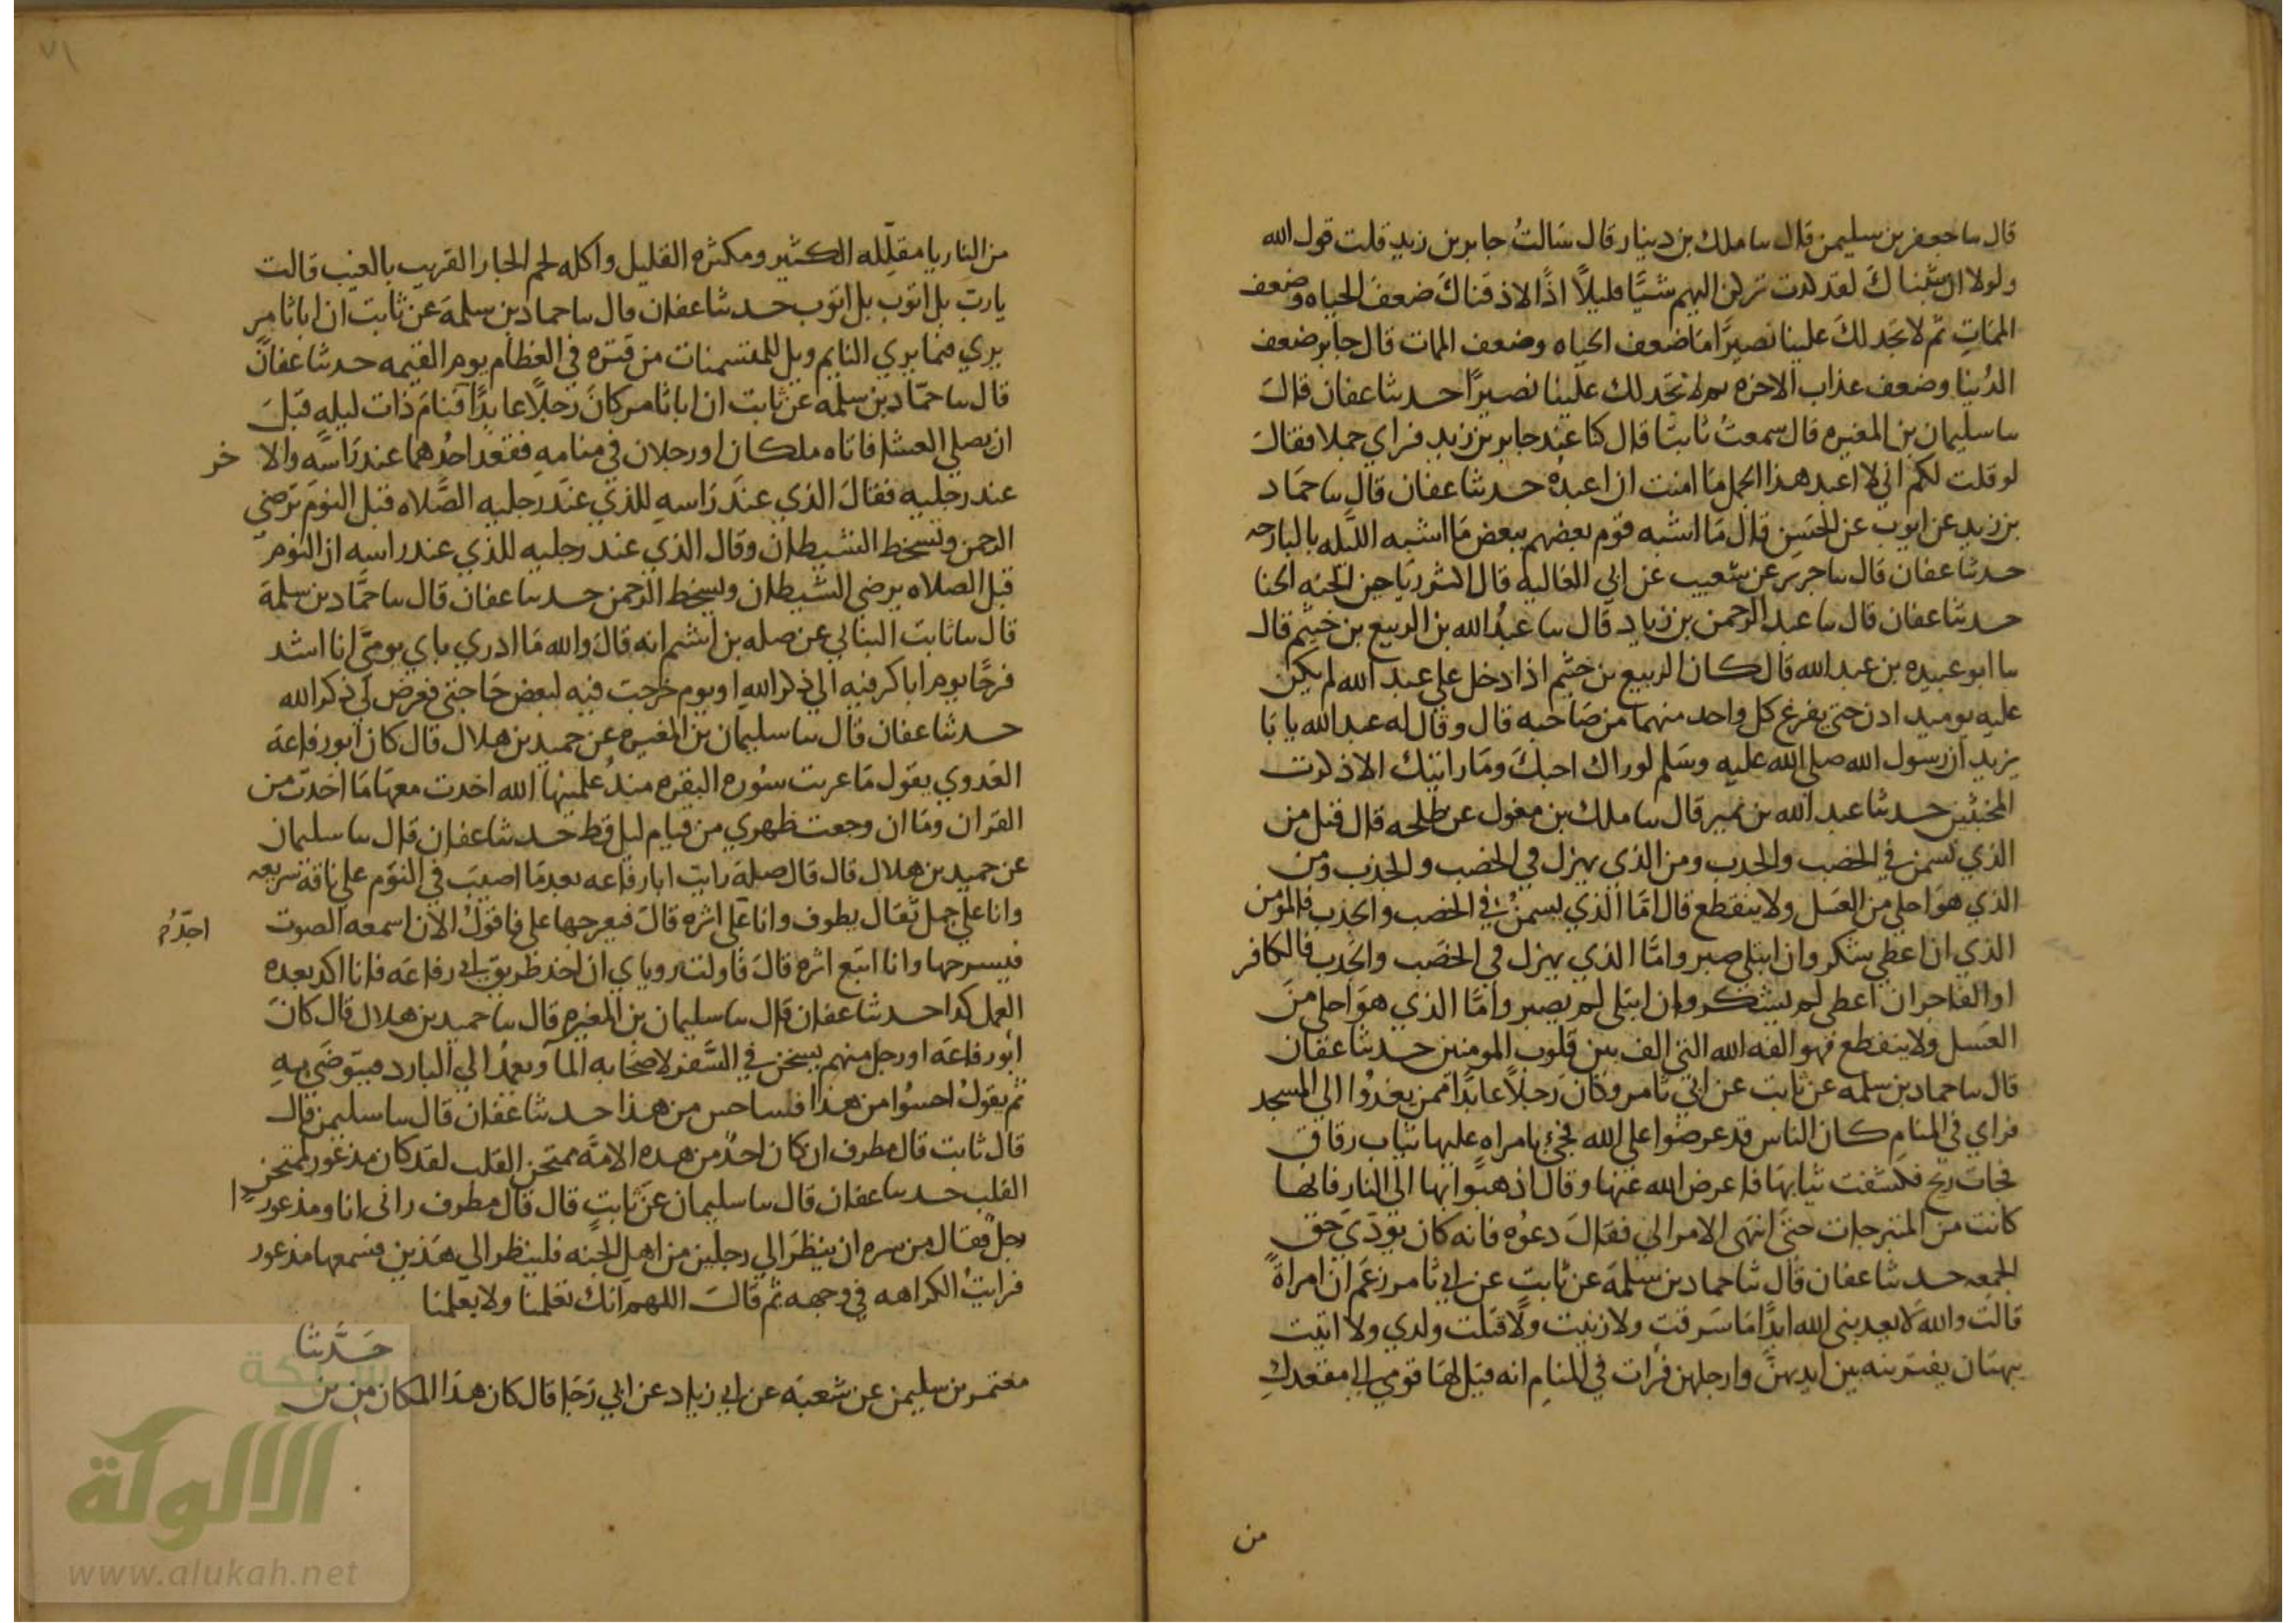 قال سا جعفر بن سليمن قال سا ملك بن دينار قال سَالتُ جابر بن زيد قلت قول الله
ولولا ان ثبتناك لقد كدت تركن اليهم شيًا قليلاً اذًا لاذقناك ضعف الحياه وضعف
الممَاتِ ثم لا تجد لكَ علينا نصيرًا مَا ضعف الحياه وضعف الممات قال جابر ضعف
الدُنيا وضعف عذاب الاخره ثم لا تجد لك علينا نصيرًا حدثنا عفان قالَ
سا سليمان بن المغيره قال سمعتُ ثابتًا قال كنا عند جابر بن زيد فراي جملا فقالَ
لو قلت لكم اني لا اعبد هذا الجمل مَا امنت ان اعبدُه حدثنا عفان قال سا حمَاد
بن زيد عن ايوب عن الحَسَن قال مَا اشبه قوم بعضهم ببعض مَا اشبه الليله بالبارحه
حدثنا عفان قال سا جرير عن شعيب عن ابي العاليه قال اشر رياحين الجنه الحنا
حدثنا عفان قال سا عبد الرحمن بن زياد قال سا عبدُ الله بن الربيع بن خثيم قال
سا ابو عبيده بن عبد الله قال كان الربيع بن خثيم اذا دخل علي عبد الله لم يكن
عليه يوميد اذن حتى يفرغ كل واحد منهما من صَاحبه قال وقال له عبد الله يا با
يزيد ان رسول الله صلى الله عليه وسَلم لو راك احبكَ ومَا رايتك الا ذكرت
المخبتين حدثنا عبد الله بن نمير قال سا ملك بن مغول عن طلحه قال قيل من
الذي يسمن في الخصب والجدب ومن الذي يهزل في الخصب والجدب ومن
الذي هوَ احلي من العَسَل ولا ينقطع قال امَّا الذي يسمنُ في الخصب والجدب فالمؤمن
الذي ان اعطي شكر وان ابتلي صبر وامَّا الذي يهزل في الخصَب والجَدب فالكافر
او الفاجر ان اعطي لم يشكر وان ابتلي لم يصبر وامَّا الذي هوَ احلي منَ
العَسَل ولا ينقطع فهو الفه الله التي الف بين قلوب المومنين حدثنا عفان
قال سا حماد بن سلمه عن ثابت عن ابي ثامر وكانَ رَجلاً عابدًا ممن يغدُوا الي المسجد
فراي في المنام كان الناس قد عرضوا على الله فجيُ بامراه عليها ثياب رقاق
فجات ريح فكشفت ثيابهَا فاعرض الله عنها وقال اذهبُوا بها الى النار فانها
كانت من المتبرجات حتى انتهى الامر الي فقالَ دعوُه فانه كان يودي حق
الجمعه حدثنا عفان قال ثنا حماد بن سلمَة عن ثابتَ عن ابي ثامر زعَم ان امراةً
قالت والله لا يعذبني الله ابدًا مَا سَرقتِ ولا زنيت ولا قتلت ولدي ولا اتيت
ببهتان يفتريَنه بين ايديهن وارجلهن فرات في المنام انه قيل لهَا قومي الي مقعدكِ
من
٧١
من النار يا مقلِّله الكثير ومكثره القليل واكله لحم الجار القريب بالغيب قالت
يارب بل اتوب بل اتوب حدثنا عفان قال سا حماد بن سلمَة عن ثابت ان ابا ثامر
يري فيما يري النايم ويل للمتسمنات من فتره في العظام يوم القيمه حدثنا عفان
قال سا حمّاد بن سلمه عن ثابت ان ابا ثامر كانَ رَجلاً عابدًا فنامَ ذات ليله قبلَ
ان يصلي العشا فاتاه ملكان او رجلان في منامه فقعد احدُهما عند رَاسَه والاخر
عند رجليه فقالَ الذي عندَ رَاسهِ للذي عندَ رجليه الصَّلاه قبل النوم ترضي
الرحمن وتسخط الشيطان وقال الذي عند رجليه للذي عند راسه ان النومَ
قبل الصلاه يرضي الشيطان ويسخط الرحمن حدثنا عفان قال سا حمَّاد بن سلمَة
قال سا ثابت البناني عن صله بن اشيم انه قالَ والله مَا ادري باي يوميَّ انا اشد
فرحًا يوم اباكر فيه الي ذكر الله او يوم خرجت فيه لبعض حَاجتي فعرض لي ذكر الله
حدثنا عفان قال سا سليمان بن المغيره عن حميد بن هلال قال كان ابو رفاعَة
العَدوي يقول مَا عزبت سُوره البقره منذُ علمنيها الله اخذت معهَا مَا اخذت من
القران ومَا ان وجعت ظهري من قيام ليل قط حدثنا عفان قال سا سليمان
عن حميد بن هلال قال قال صلة رايت ابا رفاعه بعد مَا اصيبَ في النوم علي ناقه سَريعه
وانا علي جمل ثقال بطوف وانا علي اثره قالَ فيعرجها علي فاقولُ الان اسمعه الصوت
فيسرحها وانا اتبع اثره قالَ فاولت روياي ان اخذ طريق ابي رفاعَه فانا اكد بعده
العمل كدا حدثنا عفان قال سا سليمان بن المغيره قال سا حميد بن هلال قال كانَ
ابو رفاعَه او رجل منهم يسخن في السَّفر لاصحَابه المآ ويعمدُ الي البارد فيتوضَى بهِ
ثم يقولُ احسُوا من هذا فساحس من هذا حدثنا عفان قال سا سليمن قال
قال ثابت قال مطرف ان كان احدٌ من هذه الامة ممتحن القلب لقد كان مذعور لممتحن
القلب حدثنا عفان قال سا سليمان عن ثابتٍ قال قال مطرف راني انا ومذعورا
رجلٌ فقال من سره ان ينظرَ الي رجلين من اهل الجنه فلينظر الي هَذين فسمعها مذعور
فرايتُ الكراهه في وجهه ثم قالَ اللهم انك تعلمنا ولا يعلمنا
حَدَّثنا
معتمر بن سليمن عن شعبَة عن ابي زياد عن ابي رَجا قال كان هذا المكان من بن
شبكة
الألوكة
www.alukah.net